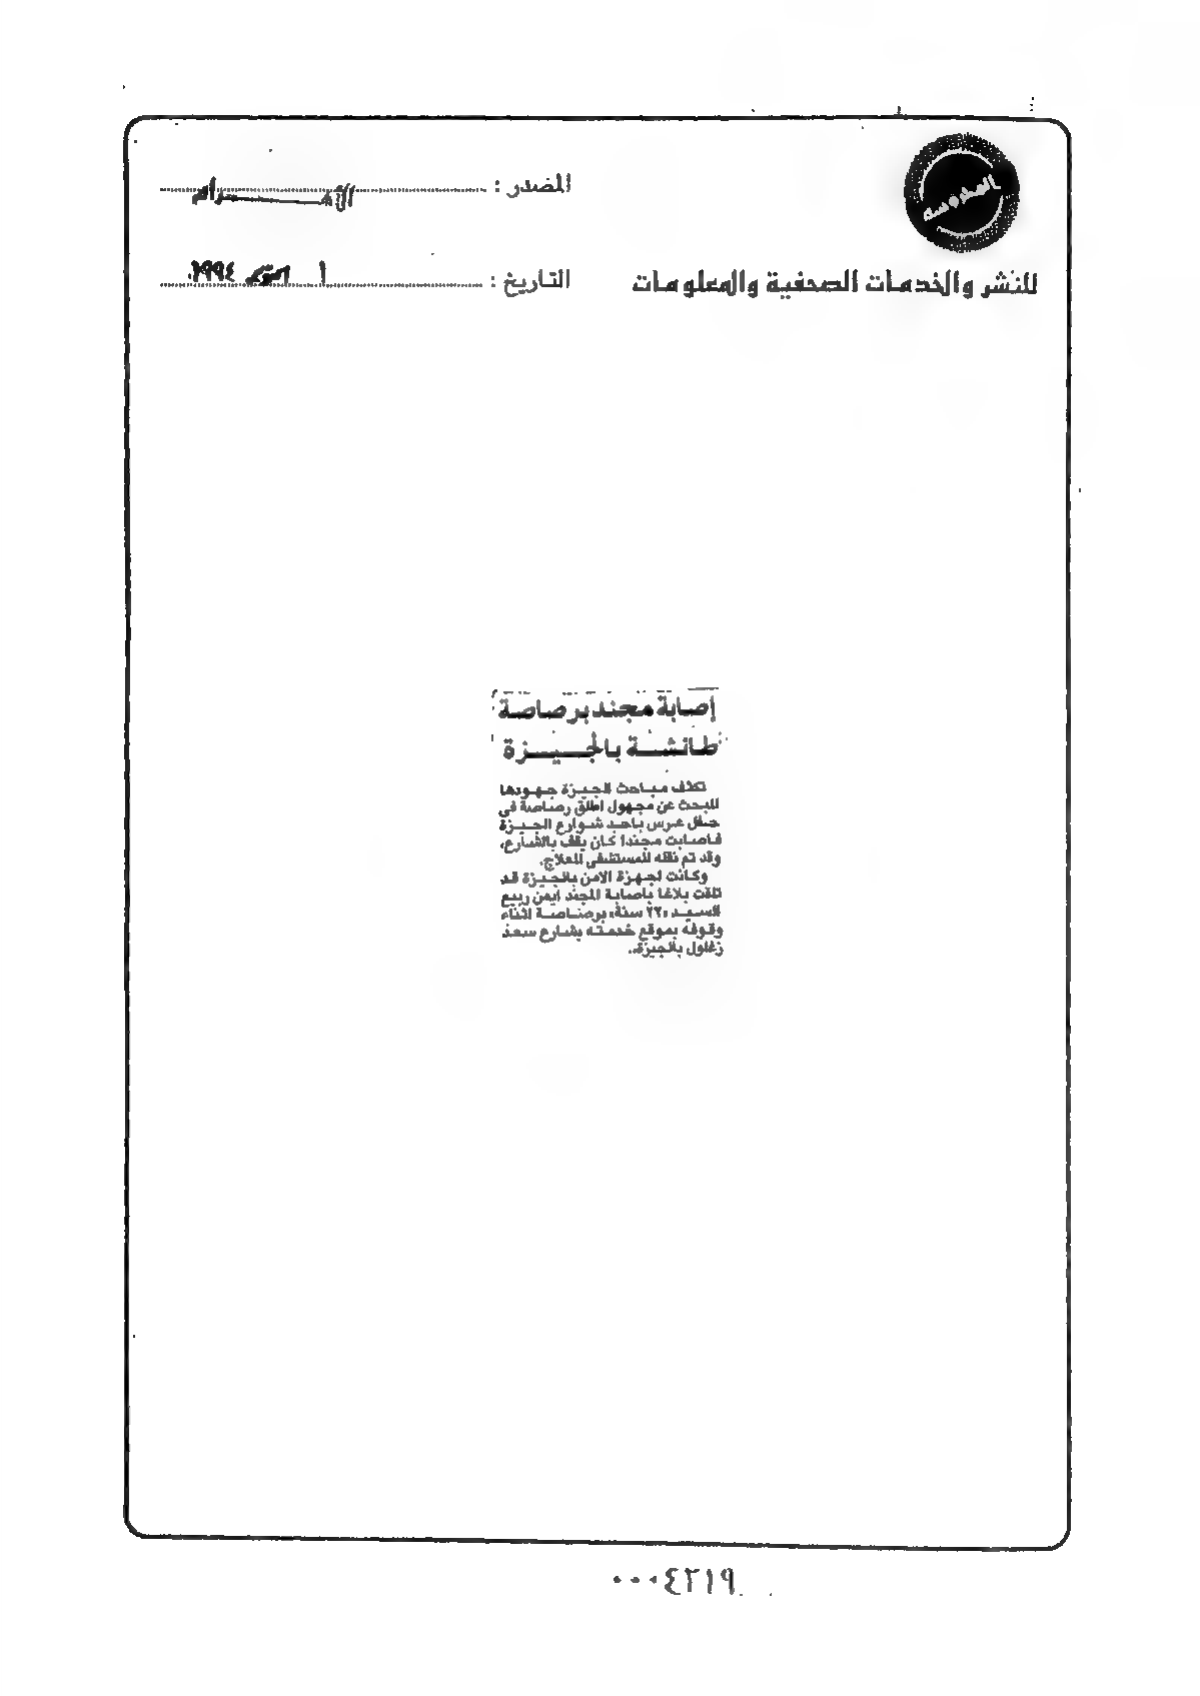 المحروسه
للنشر والخدمات الصحفية والمعلومات
المصدر : الأهرام
التاريخ : ١ أكتوبر ١٩٩٤
إصابة مجند برصاصة
طائشة بالجيزة
تكثف مباحث الجيزة جهودها
للبحث عن مجهول اطلق رصاصة فى
حفل عرس باحد شوارع الجيزة
فاصابت مجندا كان يقف بالشارع،
وقد تم نقله للمستشفى للعلاج.
وكانت اجهزة الامن بالجيزة قد
تلقت بلاغا باصابة المجند ايمن ربيع
السيد «٢٢ سنة» برصاصة اثناء
وقوفه بموقع خدمته بشارع سعد
زغلول بالجيزة..
٠٠٠٤٢١٩